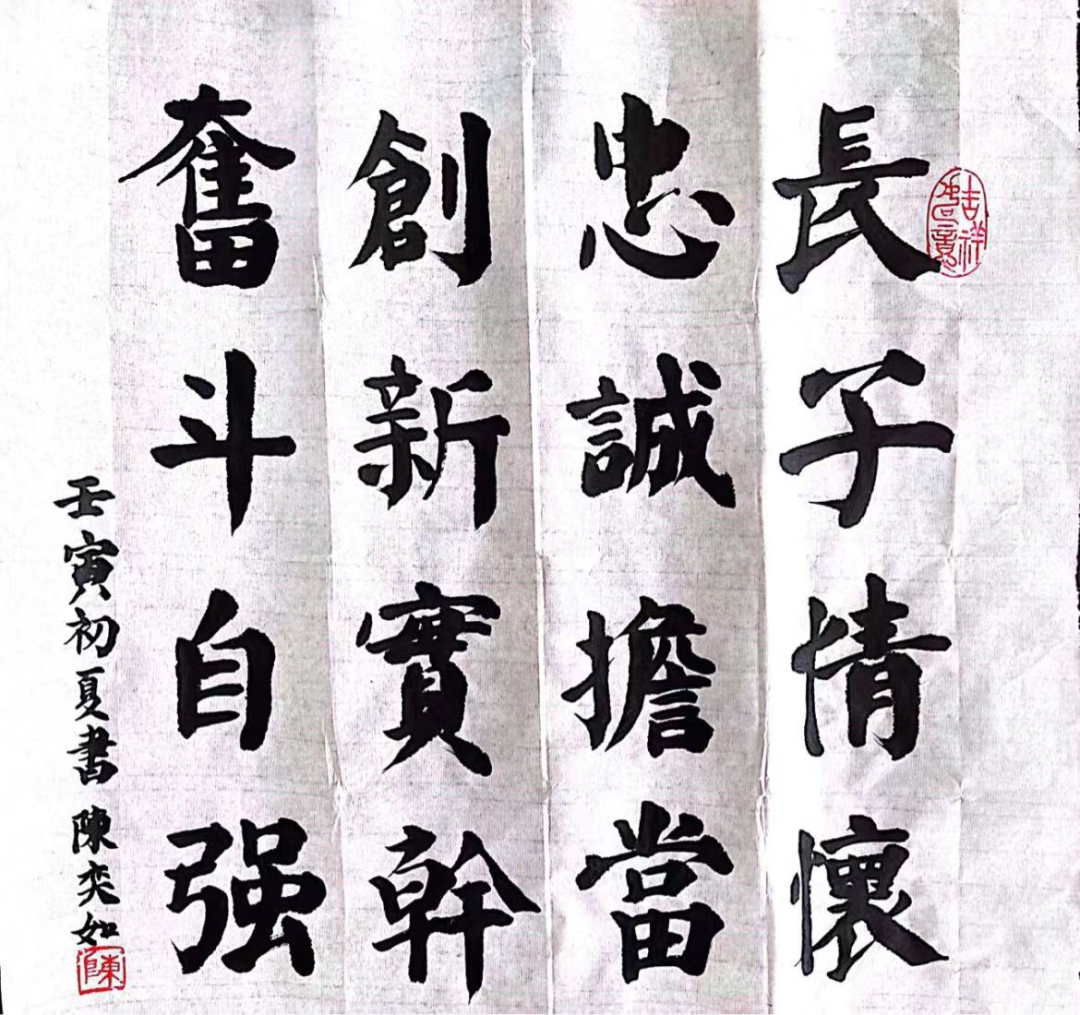 長子情懷
忠誠擔當
創新實幹
奮斗自强
壬寅初夏書 陳奕如
吉祥
陳